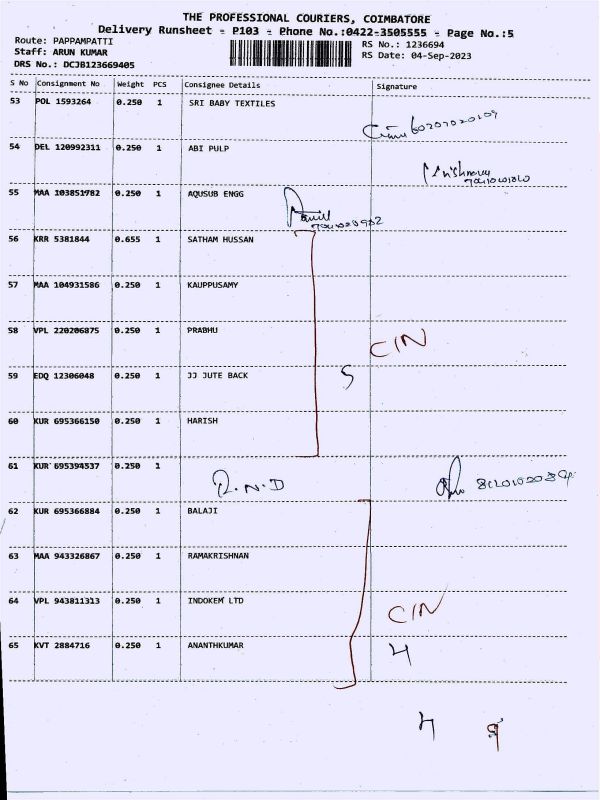 THE PROFESSIONAL COURIERS, COIMBATORE
Delivery Runsheet - P103 - Phone No.:0422-3505555 - Page No.:5
Route: PAPPAMPATTI
RS No.: 1236694
Staff: ARUN KUMAR
RS Date: 04-Sep-2023
DRS No.: DCJB123669405
S No Consignment No Weight PCS Consignee Details Signature
53 POL 1593264 0.250 1 SRI BABY TEXTILES
54 DEL 120992311 0.250 1 ABI PULP
55 MAA 103851782 0.250 1 AQUSUB ENGG
56 KRR 5381844 0.655 1 SATHAM HUSSAN
57 MAA 104931586 0.250 1 KAUPPUSAMY
58 VPL 220206875 0.250 1 PRABHU
CIN
59 EDQ 12306048 0.250 1 JJ JUTE BACK
5
60 KUR 695366150 0.250 1 HARISH
61 KUR 695394537 0.250 1
R.N.D
62 KUR 695366884 0.250 1 BALAJI
63 MAA 943326867 0.250 1 RAMAKRISHNAN
64 VPL 943811313 0.250 1 INDOKEM LTD
CIN
65 KVT 2884716 0.250 1 ANANTHKUMAR
4
4 9